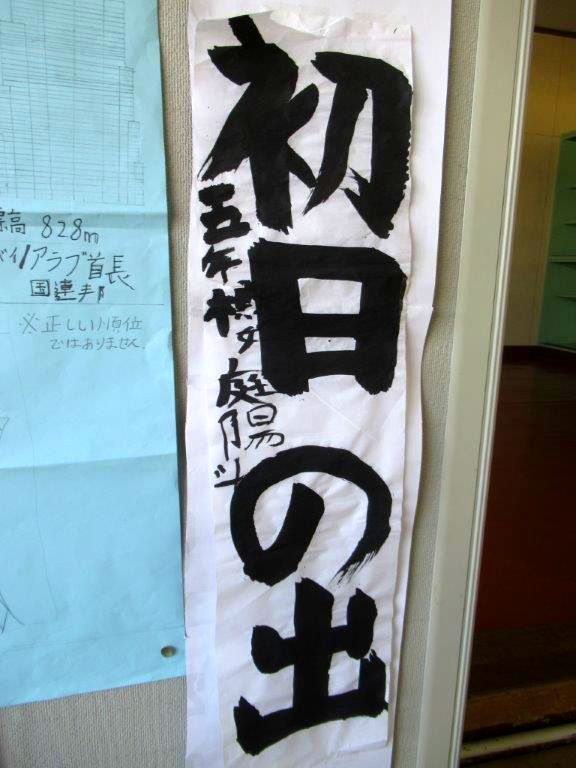 初日の出
五年
庭陽斗
標高 828m
アラブ首長
国連邦
※正しい順位
ではありません。